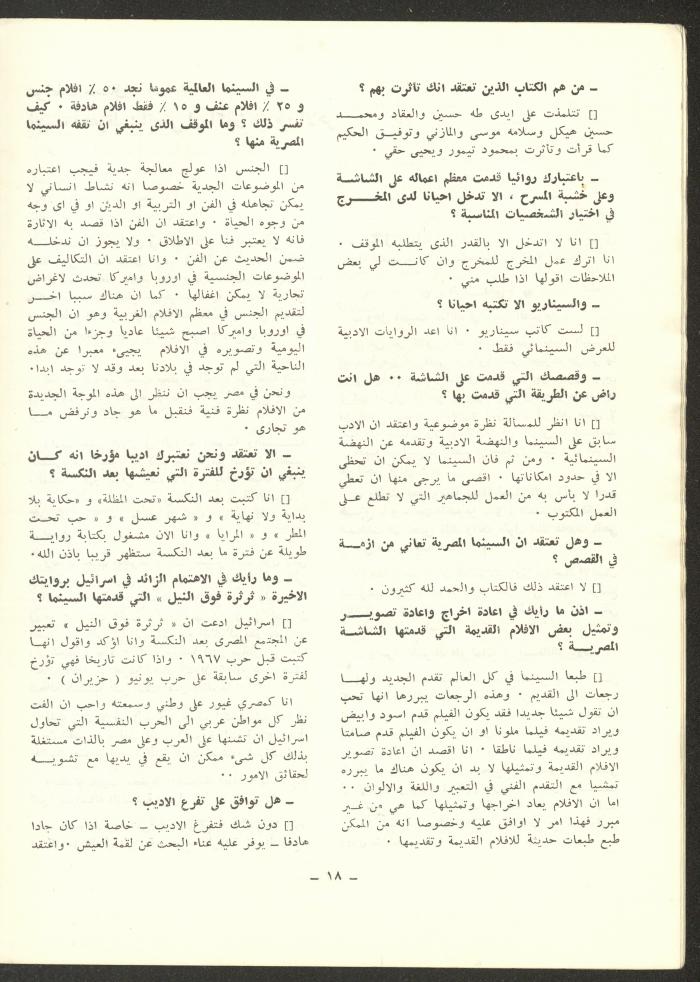 ـ من هم الكتاب الذين تعتقد انك تأثرت بهم ؟
[] تتلمذت على ايدى طه حسين والعقاد ومحمد
حسين هيكل وسلامه موسى والمازني وتوفيق الحكيم
كما قرأت وتأثرت بمحمود تيمور ويحيى حقي .
ـ باعتبارك روائيا قدمت معظم اعماله على الشاشة
وعلى خشبة المسرح ، الا تدخل احيانا لدى المخرج
في اختيار الشخصيات المناسبة ؟
[] انا لا اتدخل الا بالقدر الذى يتطلبه الموقف .
انا اترك عمل المخرج للمخرج وان كانت لي بعض
الملاحظات اقولها اذا طلب مني .
ـ والسيناريو الا تكتبه احيانا ؟
[] لست كاتب سيناريو . انا اعد الروايات الادبية
للعرض السينمائي فقط .
ـ وقصصك التي قدمت على الشاشة .. هل انت
راض عن الطريقة التي قدمت بها ؟
[] انا انظر للمسألة نظرة موضوعية واعتقد ان الادب
سابق على السينما والنهضة الادبية وتقدمه عن النهضة
السينمائية . ومن ثم فان السينما لا يمكن ان تحظى
الا في حدود امكاناتها . اقصى ما يرجى منها ان تعطي
قدرا لا بأس به من العمل للجماهير التي لا تطلع على
العمل المكتوب .
ـ وهل تعتقد ان السينما المصرية تعاني من ازمة
في القصص ؟
[] لا اعتقد ذلك فالكتاب والحمد لله كثيرون .
ـ اذن ما رأيك في اعادة اخراج واعادة تصوير
وتمثيل بعض الافلام القديمة التي قدمتها الشاشة
المصرية ؟
[] طبعا السينما في كل العالم تقدم الجديد ولها
رجعات الى القديم . وهذه الرجعات يبررها انها تحب
ان تقول شيئا جديدا فقد يكون الفيلم قدم اسود وابيض
ويراد تقديمه فيلما ملونا او ان يكون الفيلم قدم صامتا
ويراد تقديمه فيلما ناطقا . انا اقصد ان اعادة تصوير
الافلام القديمة وتمثيلها لا بد ان يكون هناك ما يبرره
تمشيا مع التقدم الفني في التعبير واللغة والالوان ..
اما ان الافلام يعاد اخراجها وتمثيلها كما هي من غير
مبرر فهذا امر لا اوافق عليه وخصوصا انه من الممكن
طبع طبعات حديثة للافلام القديمة وتقديمها .
ـ في السينما العالمية عموما نجد ٥٠ ٪ افلام جنس
و ٢٥ ٪ افلام عنف و ١٥ ٪ فقط افلام هادفة . كيف
تفسر ذلك ؟ وما الموقف الذى ينبغي ان تقفه السينما
المصرية منها ؟
[] الجنس اذا عولج معالجة جدية فيجب اعتباره
من الموضوعات الجدية خصوصا انه نشاط انساني لا
يمكن تجاهله في الفن او التربية او الدين او في اى وجه
من وجوه الحياة . واعتقد ان الفن اذا قصد به الاثارة
فانه لا يعتبر فنا على الاطلاق . ولا يجوز ان ندخله
ضمن الحديث عن الفن . وانا اعتقد ان التكاليف على
الموضوعات الجنسية في اوروبا واميركا تحدث لاغراض
تجارية لا يمكن اغفالها . كما ان هناك سببا اخر
لتقديم الجنس في معظم الافلام الغربية وهو ان الجنس
في اوروبا واميركا اصبح شيئا عاديا وجزءا من الحياة
اليومية وتصويره في الافلام يجيىء معبرا عن هذه
الناحية التي لم توجد في بلادنا بعد وقد لا توجد ابدا.
ونحن في مصر يجب ان ننظر الى هذه الموجة الجديدة
من الافلام نظرة فنية فنقبل ما هو جاد ونرفض ما
هو تجارى .
ـ الا تعتقد ونحن نعتبرك اديبا مؤرخا انه كان
ينبغي ان تؤرخ للفترة التي نعيشها بعد النكسة ؟
[] انا كتبت بعد النكسة «تحت المظلة» و «حكاية بلا
بداية ولا نهاية » و « شهر عسل » و « حب تحت
المطر » و « المرايا » وانا الان مشغول بكتابة رواية
طويلة عن فترة ما بعد النكسة ستظهر قريبا باذن الله.
ـ وما رأيك في الاهتمام الزائد في اسرائيل بروايتك
الاخيرة « ثرثرة فوق النيل » التي قدمتها السينما ؟
[] اسرائيل ادعت ان « ثرثرة فوق النيل » تعبير
عن المجتمع المصرى بعد النكسة وانا اؤكد واقول انها
كتبت قبل حرب ١٩٦٧ . واذا كانت تاريخا فهي تؤرخ
لفترة اخرى سابقة على حرب يونيو ( حزيران ) .
انا كمصري غيور على وطني وسمعته واحب ان الفت
نظر كل مواطن عربي الى الحرب النفسية التي تحاول
اسرائيل ان تشنها على العرب وعلى مصر بالذات مستغلة
بذلك كل شىء ممكن ان يقع في يديها مع تشويه
لحقائق الامور ..
ـ هل توافق على تفرغ الاديب ؟
[] دون شك فتفرغ الاديب ـ خاصة اذا كان جادا
هادفا ـ يوفر عليه عناء البحث عن لقمة العيش .واعتقد
ـ ١٨ ـ